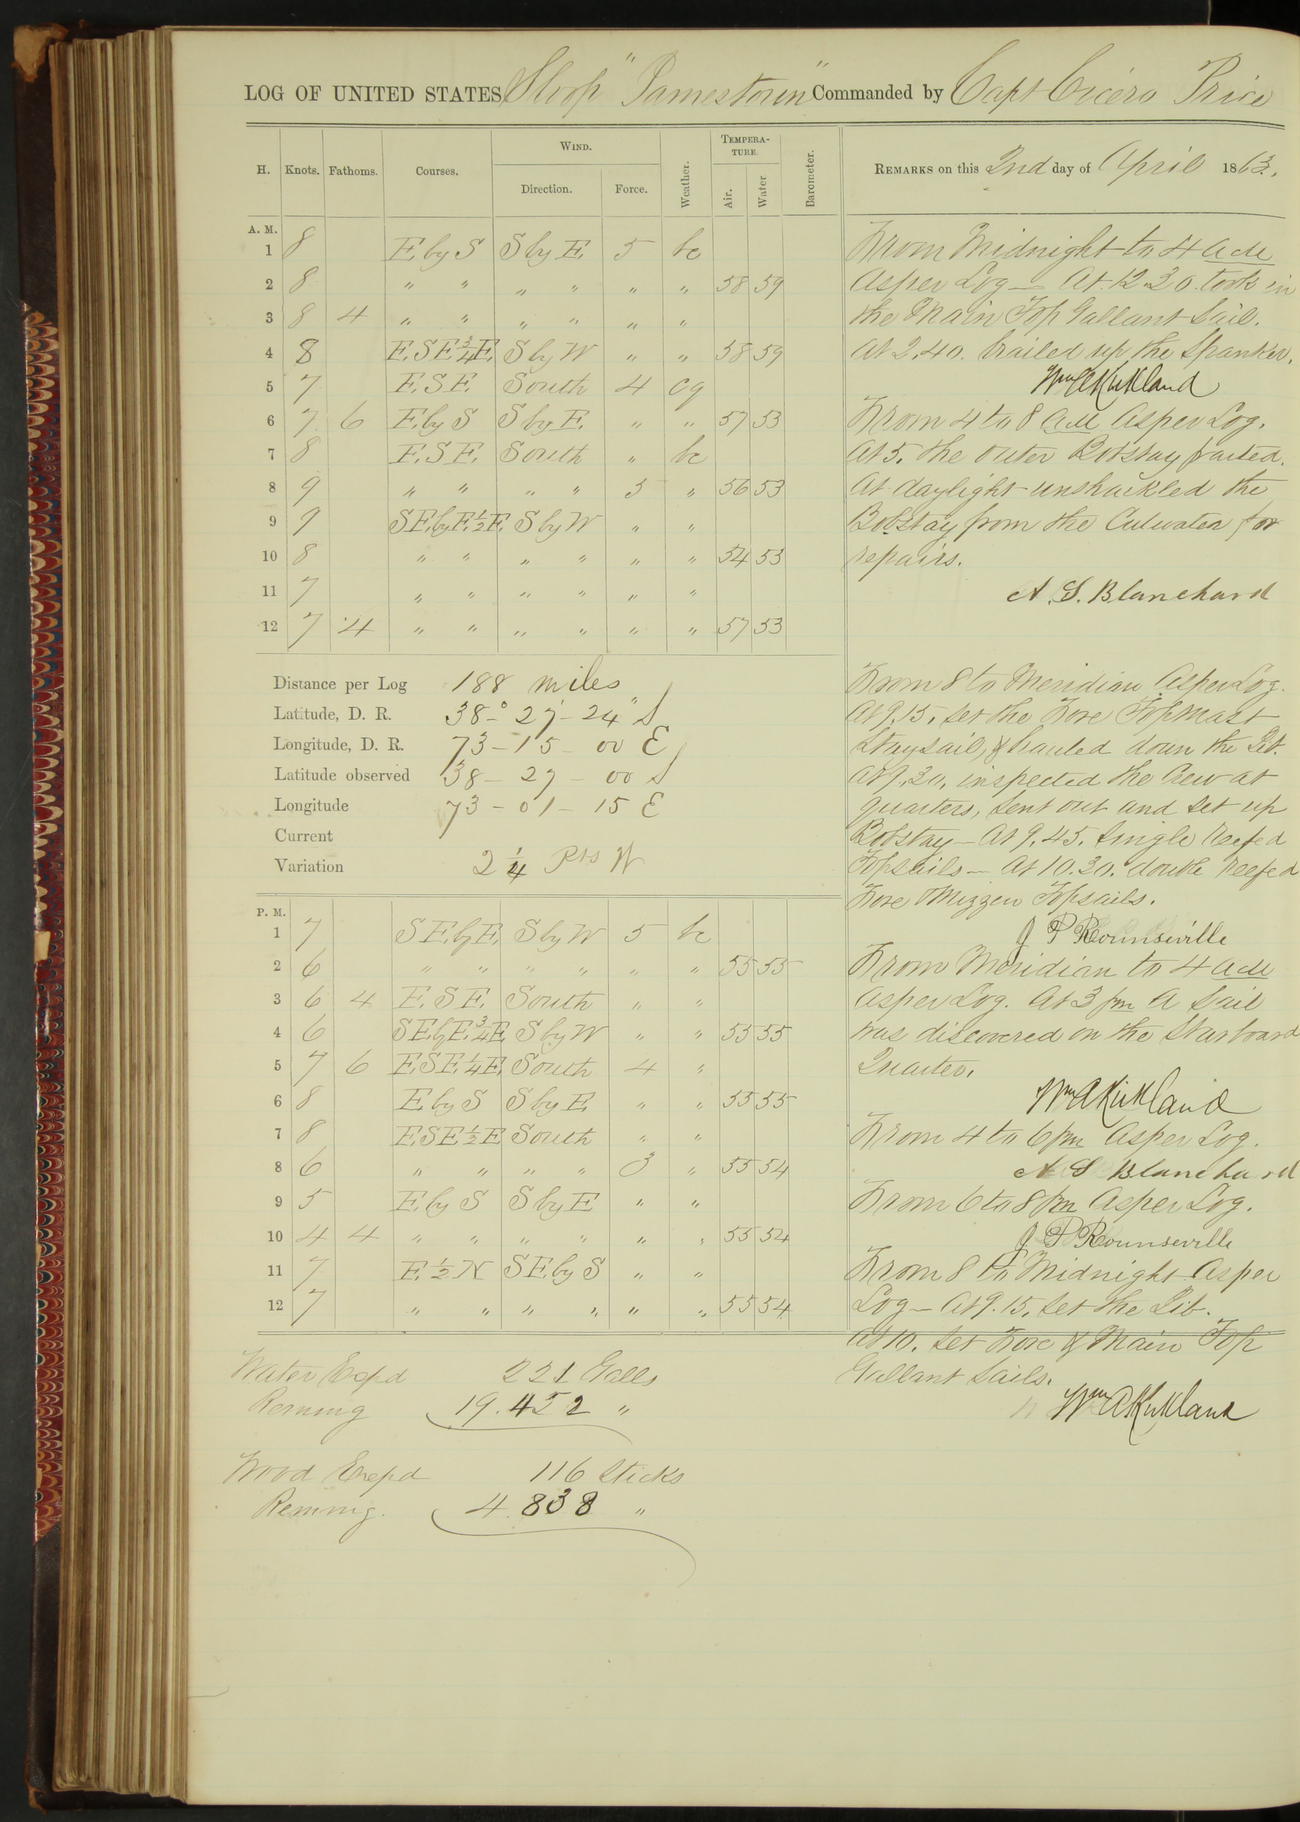 LOG OF UNITED STATES Sloop "Jamestown" Commanded by Capt Cicero Price
H. Knots. Fathoms. Courses. WIND. Direction. Force. Weather. TEMPERATURE. Air. Water Barometer.
REMARKS on this 2nd day of April 1863.
A. M.
1 8 E by S S by E 5 bc
2 8 " " " " " " 58 59
3 8 4 " " " " " "
4 8 ESE 3/4 E S by W " " 58 59
5 7 ESE South 4 cq
6 7 6 E by S S by E " " 57 53
7 8 ESE South " bc
8 9 " " " " 5 " 56 53
9 9 SE by E 1/2 E S by W " "
10 8 " " " " " " 54 53
11 7 " " " " " "
12 7 4 " " " " " " 57 53
Distance per Log 188 miles
Latitude, D. R. 38-° 27'- 24" S
Longitude, D. R. 73-15-00 E
Latitude observed 38-27-00 S
Longitude 73-01-15 E
Current
Variation 2 1/4 Pts W
P. M.
1 7 SE by E S by W 5 bc
2 6 " " " " " " 55 55
3 6 4 ESE South " "
4 6 SE by E 3/4 E S by W " " 55 55
5 7 6 ESE 1/4 E South 4 "
6 8 E by S S by E " " 55 55
7 8 ESE 1/2 E South " "
8 6 " " " " 3 " 55 54
9 5 E by S S by E " "
10 4 4 " " " " " " 55 54
11 7 E 1/2 N SE by S " "
12 7 " " " " " " 55 54
Water Expd 221 Galls
Remng 19.452 "
Wood Expd 116 Sticks
Remng. 4.838 "
From Midnight to 4 AM
As per Log — At 12.30. took in
the Main Top Gallant Sail.
At 2.40. brailed up the Spanker.
Wm A Kirkland
From 4 to 8 AM As per Log.
At 5. the outer Bobstay parted.
At daylight unshackled the
Bobstay from the Cutwater for
repairs.
A. S. Blanchard
From 8 to Meridian As per Log.
At 9.15, set the Fore Topmast
Staysail, & hauled down the Jib.
At 9.30, inspected the Crew at
quarters, sent out and set up
Bobstay — At 9.45. Single reefed
Topsails — At 10.30. double reefed
Fore & Mizzen Topsails.
J P Rounseville
From Meridian to 4 AM
As per Log. At 3 pm A Sail
was discovered on the Starboard
Quarter.
Wm A Kirkland
From 4 to 6 pm As per Log.
A S Blanchard
From 6 to 8 pm As per Log.
J P Rounseville
From 8 to Midnight As per
Log — At 9.15, set the Jib.
At 10. set Fore & Main Top
Gallant Sails.
Wm A Kirkland